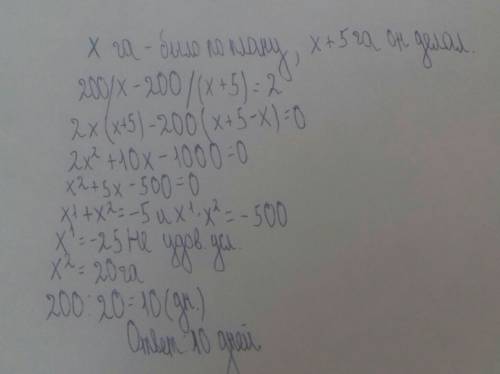 x га - было по плану, x+5 га он делал.
200/x - 200/(x+5) = 2
2x(x+5) - 200(x+5-x) = 0
2x² + 10x - 1000 = 0
x² + 5x - 500 = 0
x¹ + x² = -5 и x¹ · x² = -500
x¹ = -25 Не удов. усл.
x² = 20 га
200 : 20 = 10 (дн.)
Ответ 10 дней